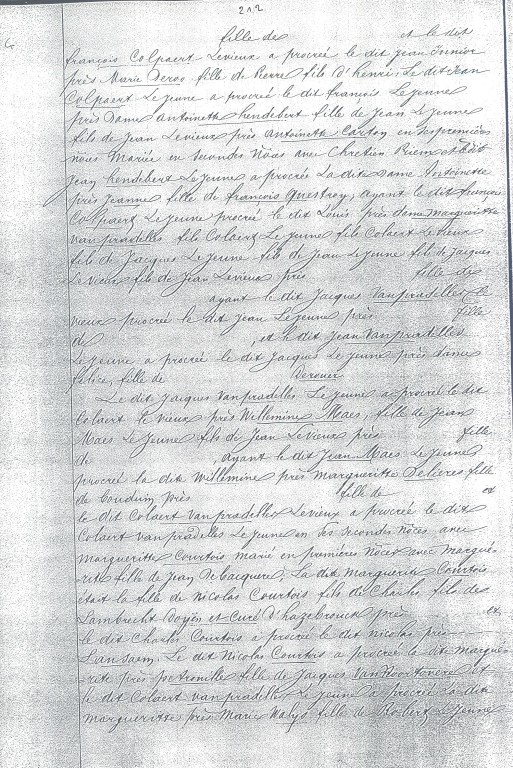 212
fille de et le dit
françois Colpaert Levieux a procréé le dit Jean Juniore
près Marie Deroo fille de Pierre fils d'henri. Le dit Jean
Colpaert Le Jeune a procréé le dit françois Lejeune
près Dame Antoinette hendebert fille de Jean Le Jeune
fils de Jean Levieux près Antoinette Carton en ses premières
noces Mariée en secondes Nôces avec Chretien Riem et le dit
Jean hendebert Le Jeune a procréé La dite Dame Antoinette
près Jeanne fille de françois Questroy, ayant le dit françois
Colpaert Le Jeune procréé le dit Louis près dame margueritte
vanpradelles fille Colaert Le Jeune fils Colaert Le vieux
fils de Jacques Le Jeune fils de Jean Le Jeune fils de Jacques
Le vieux fils de Jean Levieux près fille de
ayant le dit Jacques Vanpradelles Le
vieux procréé le dit Jean Le Jeune près fille
de , et le dit Jean Vanpradelles
Le Jeune a procréé le dit Jacques Le Jeune près dame
felice, fille de Derouer
Le dit Jacques Vanpradelles Le Jeune a procréé le dit
Colaert le vieux près Willemine Maes, fille de Jean
Maes Le Jeune fils de Jean Levieux près fille
de , ayant le dit Jean Maes Le Jeune
procréé la dite Willemine près Margueritte Delivres fille
de Boudum près fille de et
le dit Colaert vanpradelles Levieux a procréé le dit
Colaert vanpradelles Le Jeune en ses secondes nôces avec
margueritte Courtois marié en premières nôces avec margué
rite fille de Jean Debacquer, La dite Marguerite Courtois
était la fille de Nicolas Courtois fils de Charles fils de
Lambrecht Doyen et Curé d'hazebrouck près et
le dit Charles Courtois a procréé le dit nicolas près
Lansaem, Le dit Nicolas Courtois a procréé la dite margué
-rite près petronille fille de Jacques Van Noortovere et
le dit Colaert vanpradelle Le Jeune a procréé La dite
margueritte près Marie Walys fille de Robert Le Jeune